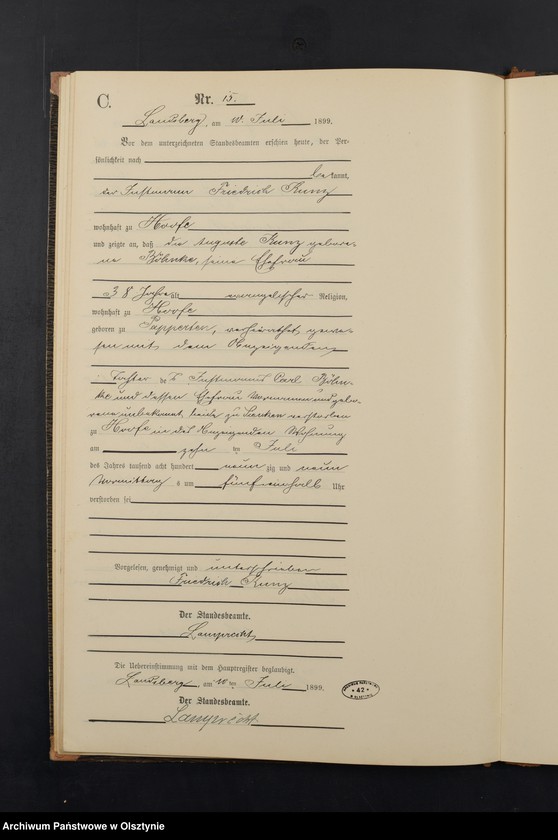 C.
Nr. 15.
Landsberg, am 10. Juli 1899.
Vor dem unterzeichneten Standesbeamten erschien heute, der Per-
sönlichkeit nach
bekannt,
der Instmann Friedrich Kunz
wohnhaft zu Hoofe
und zeigte an, daß die Auguste Kunz gebore-
ne Böhnke, seine Ehefrau
38 Jahre alt, evangelischer Religion,
wohnhaft zu Hoofe
geboren zu Papperten, verheirathet gewe-
sen mit dem Anzeigenden,
Tochter des Instmanns Carl Böhn-
ke und dessen Ehefrau Vornamen und gebo-
rene unbekannt, beide zu verstorben
zu Hoofe in des Anzeigenden Wohnung
am zehnten Juli
des Jahres tausend acht hundert neunzig und neun
Vormittags um fünfeinhalb Uhr
verstorben sei
Vorgelesen, genehmigt und unterschrieben
Friedrich Kunz
Der Standesbeamte.
Lamprecht
Die Uebereinstimmung mit dem Hauptregister beglaubigt.
Landsberg, am 10ten Juli 1899.
Der Standesbeamte.
Lamprecht
* 42 *
Archiwum Państwowe w Olsztynie